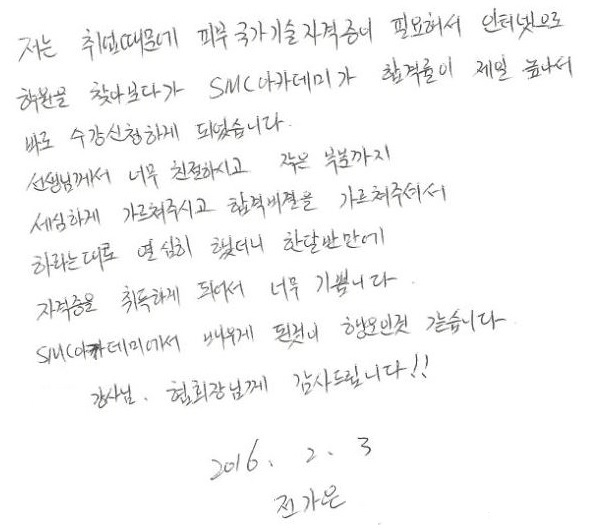 저는 취업때문에 피부 국가기술자격증이 필요해서 인터넷으로
학원을 찾아보다가 SMC아카데미가 합격률이 제일 높아서
바로 수강신청하게 되었습니다.
선생님께서 너무 친절하시고 작은 부분까지
세심하게 가르쳐주시고 합격비결을 가르쳐주셔서
하라는대로 열심히 했더니 한달반만에
자격증을 취득하게 되어서 너무 기쁩니다.
SMC아카데미에서 배우게 된것이 행운인것 같습니다.
강사님. 협회장님께 감사드립니다!!
2016. 2. 3
전가은